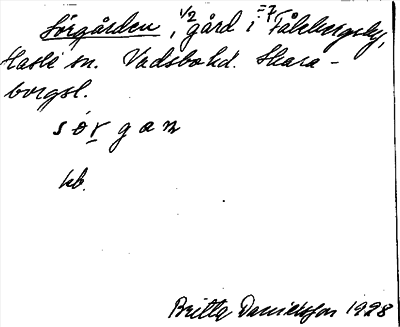 Sörgården, 1/2 gård i =7 Fåleberg by,
Hasle sn. Vadsbo hd. Skara-
borgsl.
sörgan
kb.
Britta Danielsson 1928